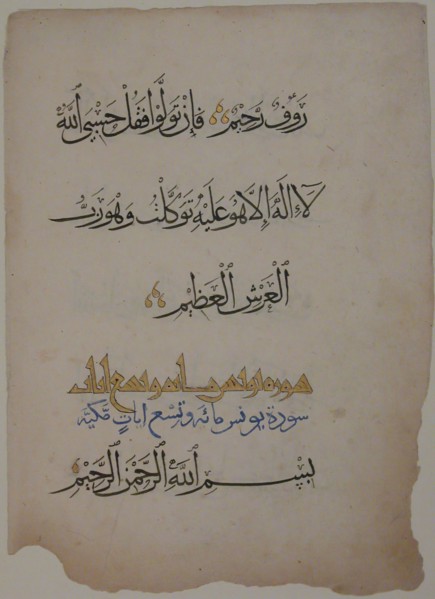 رَؤُفٌ رَحِيمٌ فَإِنْ تَوَلَّوْا فَقُلْ حَسْبِيَ ٱللَّهُ
لَا إِلَهَ إِلَّا هُوَ عَلَيْهِ تَوَكَّلْتُ وَهُوَ رَبُّ
ٱلْعَرْشِ ٱلْعَظِيمِ
سورة يونس مائة وتسع ايات
سورة يونس مائة وتسع اياتٍ مكّيّة
بِسْمِ ٱللَّهِ ٱلرَّحْمَنِ ٱلرَّحِيمِ